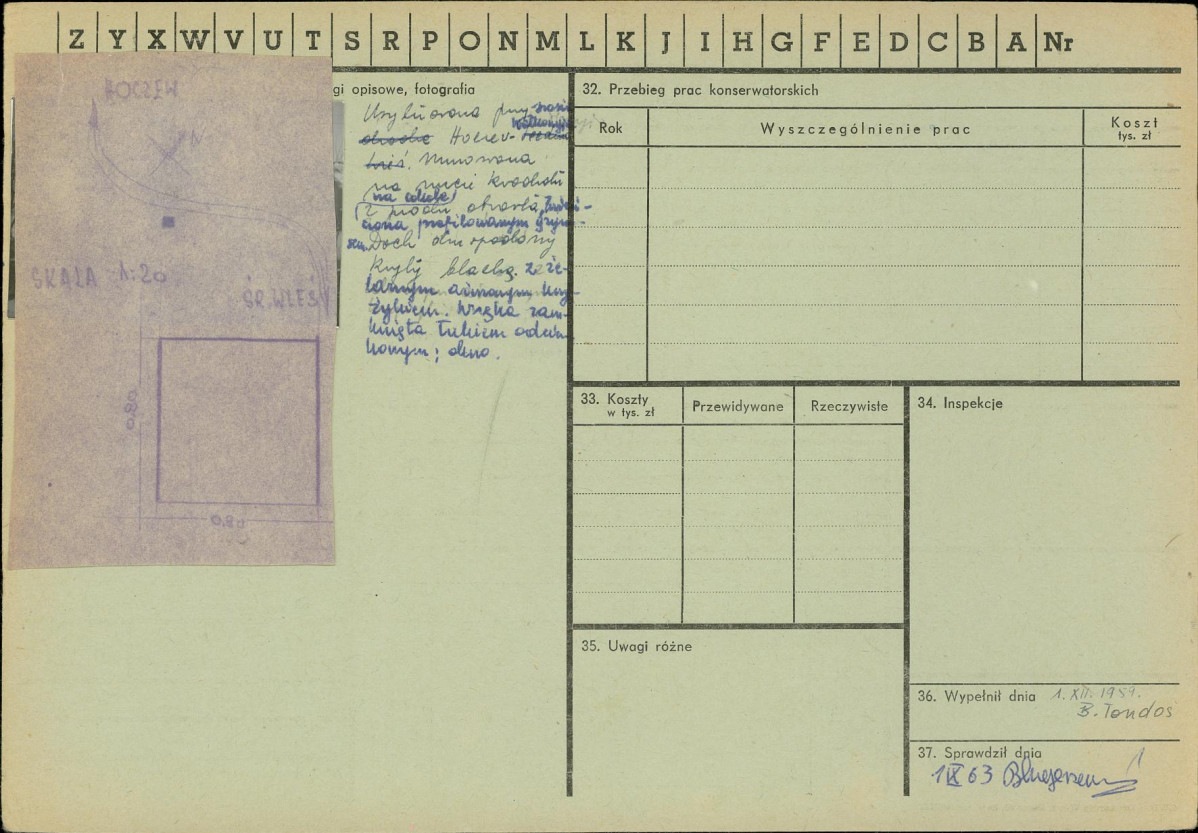 Z Y X W V U T S R P O N M L K J I H G F E D C B A Nr
HOCZEW
N
SKALA 1:20
ŚR. WIEŚ
0,80
0,80
gi opisowe, fotografia
Usytuowana przy
drodze Hoczew-
wieś. Murowana
na rzucie kwadratu
na cokole
z przodu otwarta, zwień-
czona profilowanym gzym-
sem. Dach dwuspadowy
kryty blachą z że-
laznym ażurowym krzy-
żykiem. Wnęka zam-
knięta łukiem odcin-
kowym; okno.
32. Przebieg prac konserwatorskich
Rok
Wyszczególnienie prac
Koszt
tys. zł
33. Koszty
w tys. zł
Przewidywane
Rzeczywiste
34. Inspekcje
35. Uwagi różne
36. Wypełnił dnia 1. XII. 1959.
B. Tondos
37. Sprawdził dnia
1 IX 63